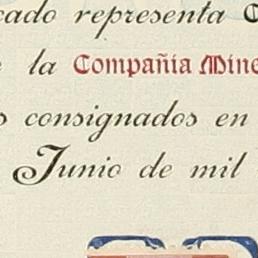 cado representa
la Compañia Mine
consignados en
Junio de mil